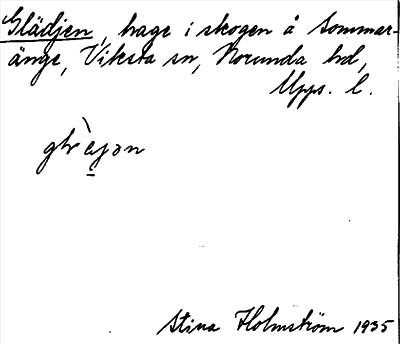 Glädjen, hage i skogen å Sommar-
änge, Viksta sn, Norunda hd,
Upps. l.
Stina Holmström 1935